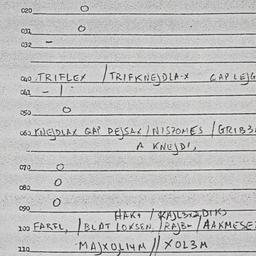 020 O
031 O
032 -
040 TRIFLEX / TRIFKNEJDLA-X GAPLEJG
041 - 1
050 O
060 KNEJDLAX GAP DEJSAX / NISPOMES / GRIB3
A KNEJDI,
070 O
080 O
090 O
HAKT /
100 FARFL, / BLAT LOKSEN / RAJB- / AAKMESE
110 MAJXOLIYM // XOL3M